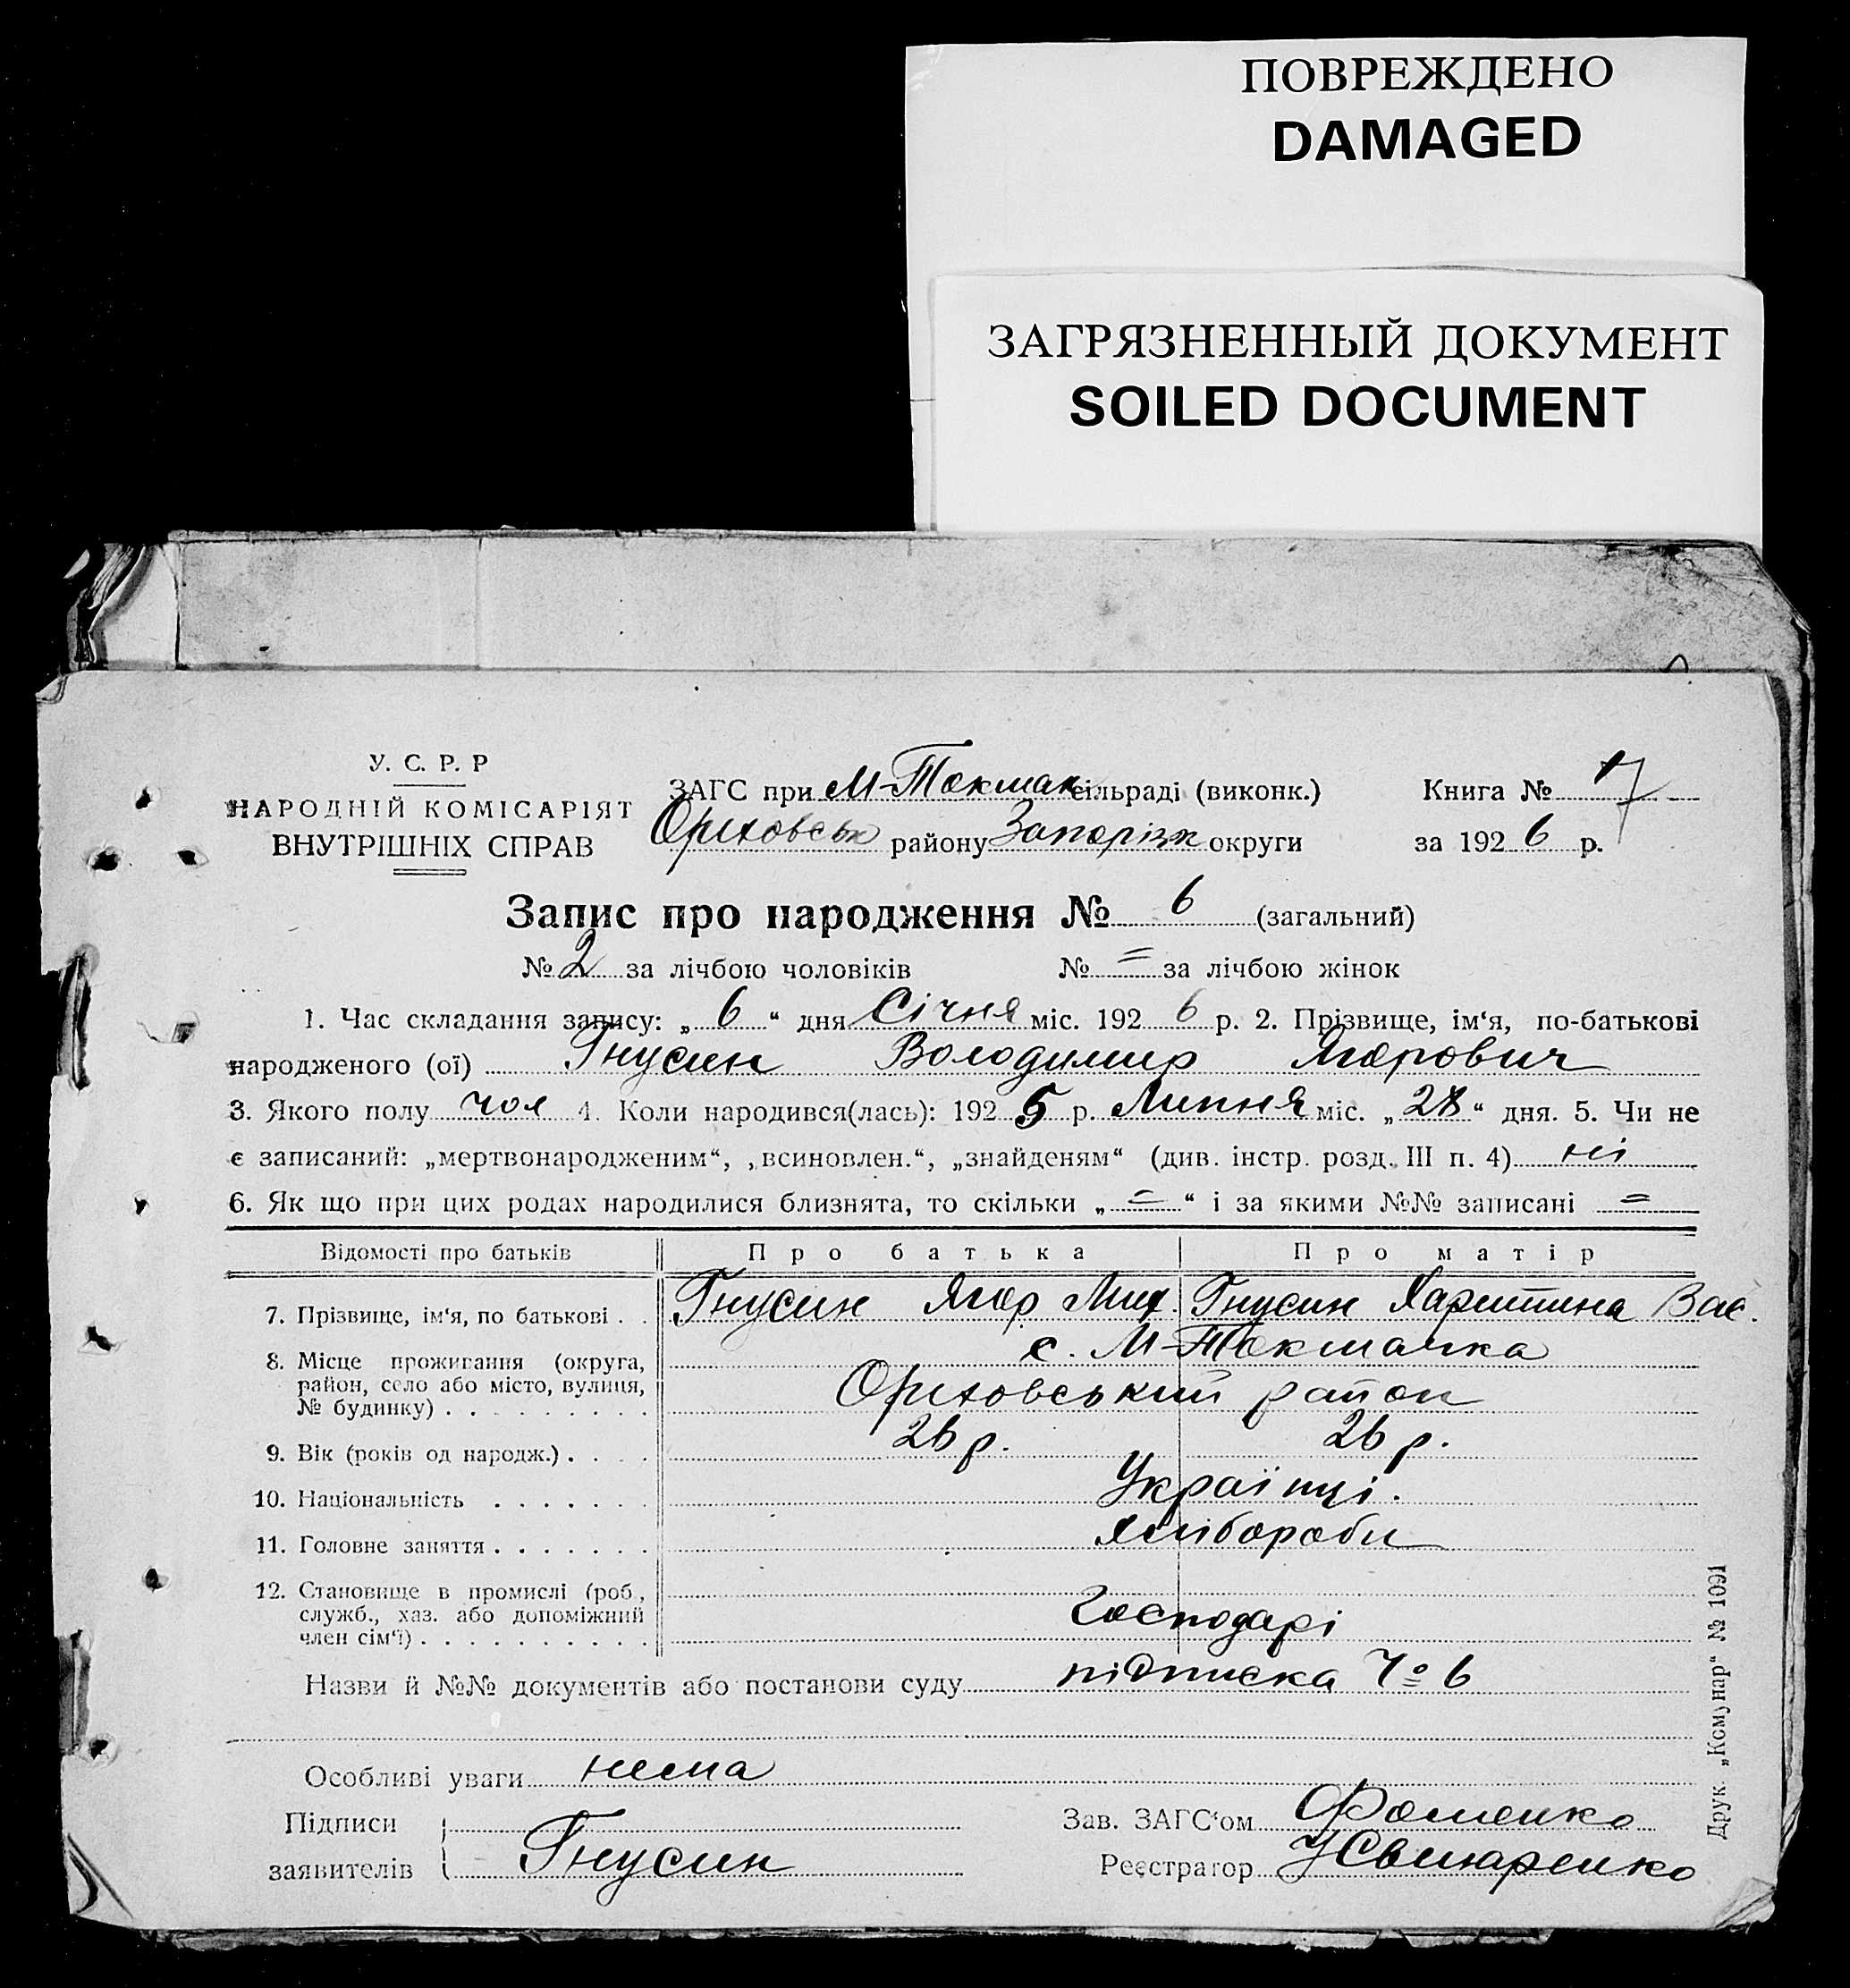 ПОВРЕЖДЕНО
DAMAGED
ЗАГРЯЗНЕННЫЙ ДОКУМЕНТ
SOILED DOCUMENT
У. С. Р. Р
НАРОДНІЙ КОМІСАРІЯТ
ВНУТРІШНІХ СПРАВ
ЗАГС при М-Токмак сільраді (виконк.)
Оріховськ району Запоріж округи
Книга № 17
за 1926 р.
Запис про народження № 6 (загальний)
№ 2 за лічбою чоловіків № = за лічбою жінок
1. Час складання запису: „6“ дня Січня міс. 1926 р. 2. Прізвище, ім‘я, по-батькові
народженого (ої) Гнусин Володимир Ягорович
3. Якого полу чол 4. Коли народився(лась): 1925 р. Липня міс. „28“ дня. 5. Чи не
є записаний: „мертвонародженим“, „всиновлен.“, „знайденям“ (див. інстр. розд. III п. 4) ні
6. Як що при цих родах народилися близнята, то скільки „=“ і за якими №№ записані =
Відомості про батьків Про батька Про матір
7. Прізвище, ім‘я, по батькові . . Гнусин Ягор Мих. Гнусин Харитина Вас.
8. Місце проживання (округа, район, село або місто, вулиця, № будинку) . . . . . . . . . с. М-Токмачка
Оріховський район
9. Вік (років од народж.) . . . . 26 р. 26 р.
10. Національність . . . . . . . Українці.
11. Головне заняття . . . . . . . Хлібороби
12. Становище в промислі (роб., служб., хаз. або допоміжний член сім‘ї) . . . . . . . . . . Господарі
Назви й №№ документів або постанови суду підписка № 6
Особливі уваги нема
Підписи
заявителів Гнусин
Зав. ЗАГС‘ом Фоменко
Реєстратор Свинаренко
Друк. „Комунар“ № 1091